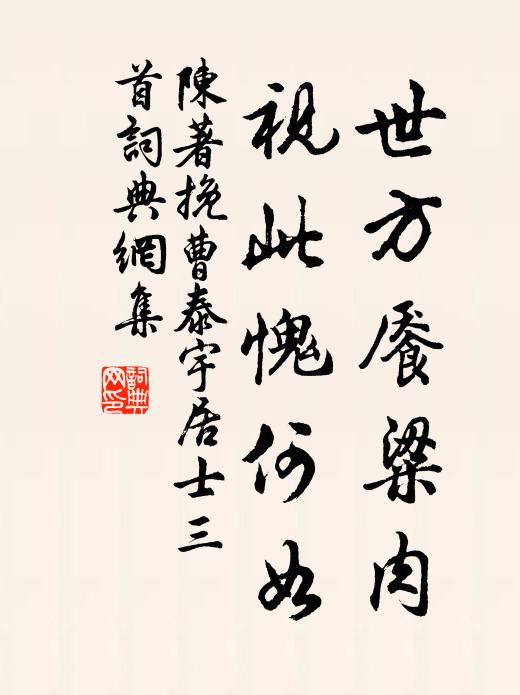 世方饜粱肉
視此愧何如
陳著挽曹泰宇居士三
首詞典網集
詞典
网印